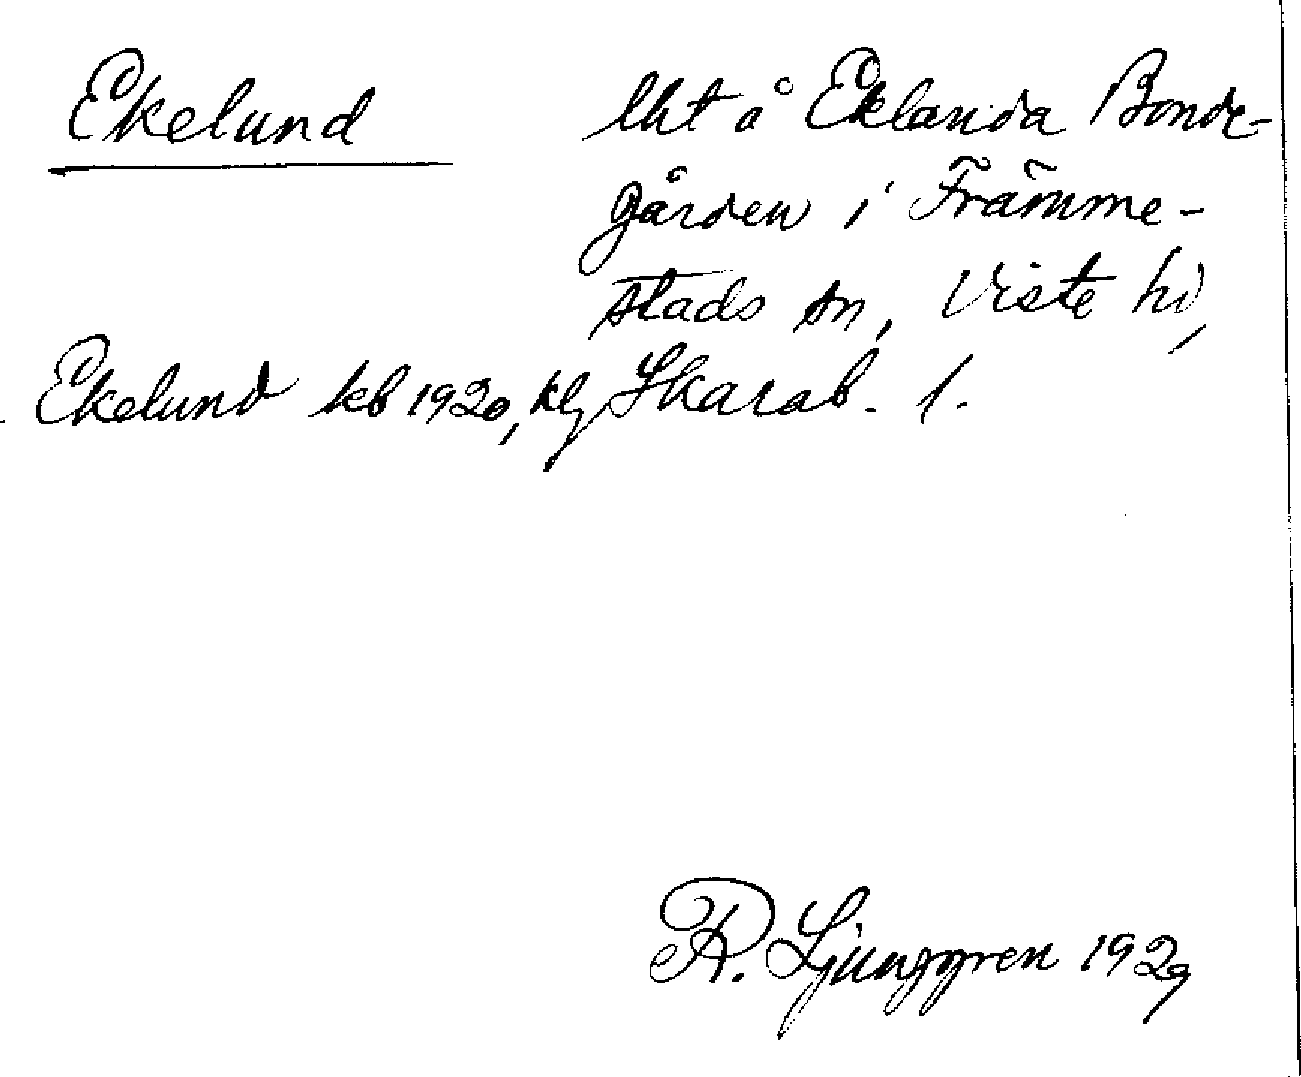 Ekelund
lht å Eklanda Bonde-
gården i Främme-
stads sn, Viste hd,
Skarab. l.
Ekelund kb 1920, klg
R. Ljunggren 1929